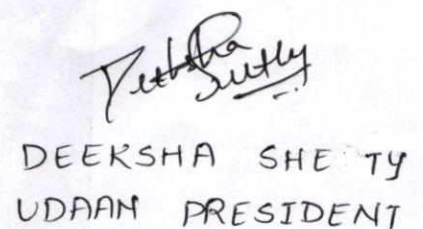 Deeksha
Shetty
DEEKSHA SHE TY
UDAAN PRESIDENT